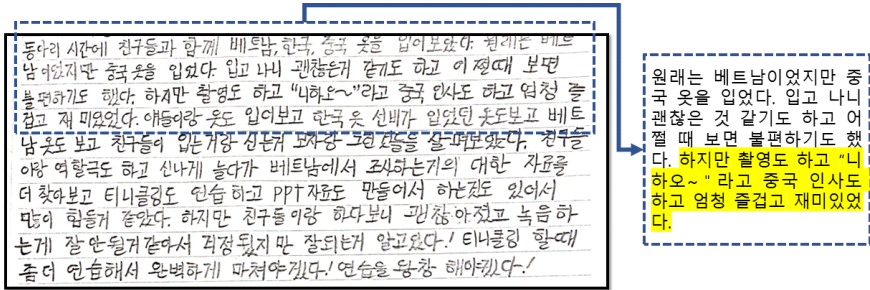 동아리 시간에 친구들과 함께 베트남, 한국, 중국 옷을 입어보았다. 원래는 베트
남이었지만 중국 옷을 입었다. 입고 나니 괜찮은거 같기도 하고 어쩔때 보면
불편하기도 했다. 하지만 촬영도 하고 "니하오~"라고 중국 인사도 하고 엄청 즐
겁고 재미있었다. 얘들이랑 옷도 입어보고 한국 옷 선비가 입었던 옷도보고 베트
남 옷도 보고 친구들이 입는거랑 신는거 모자랑 그런것들을 살펴보았다. 친구들
이랑 역할극도 하고 신나게 놀다가 베트남에서 조사하는거의 대한 자료를
더 찾아보고 티니클링도 연습하고 PPT자료도 만들어서 하는것도 있어서
많이 힘들거 같았다. 하지만 친구들이랑 하다보니 괜찮아졌고 녹음하
는게 잘 안될거같아서 걱정됐지만 잘되는거 알고있다! 티니클링 할때
좀더 연습해서 완벽하게 마쳐야겠다! 연습을 왕창 해야겠다~!
원래는 베트남이었지만 중
국 옷을 입었다. 입고 나니
괜찮은 것 같기도 하고 어
쩔 때 보면 불편하기도 했
다. 하지만 촬영도 하고 "니
하오~ "라고 중국 인사도
하고 엄청 즐겁고 재미있었
다.